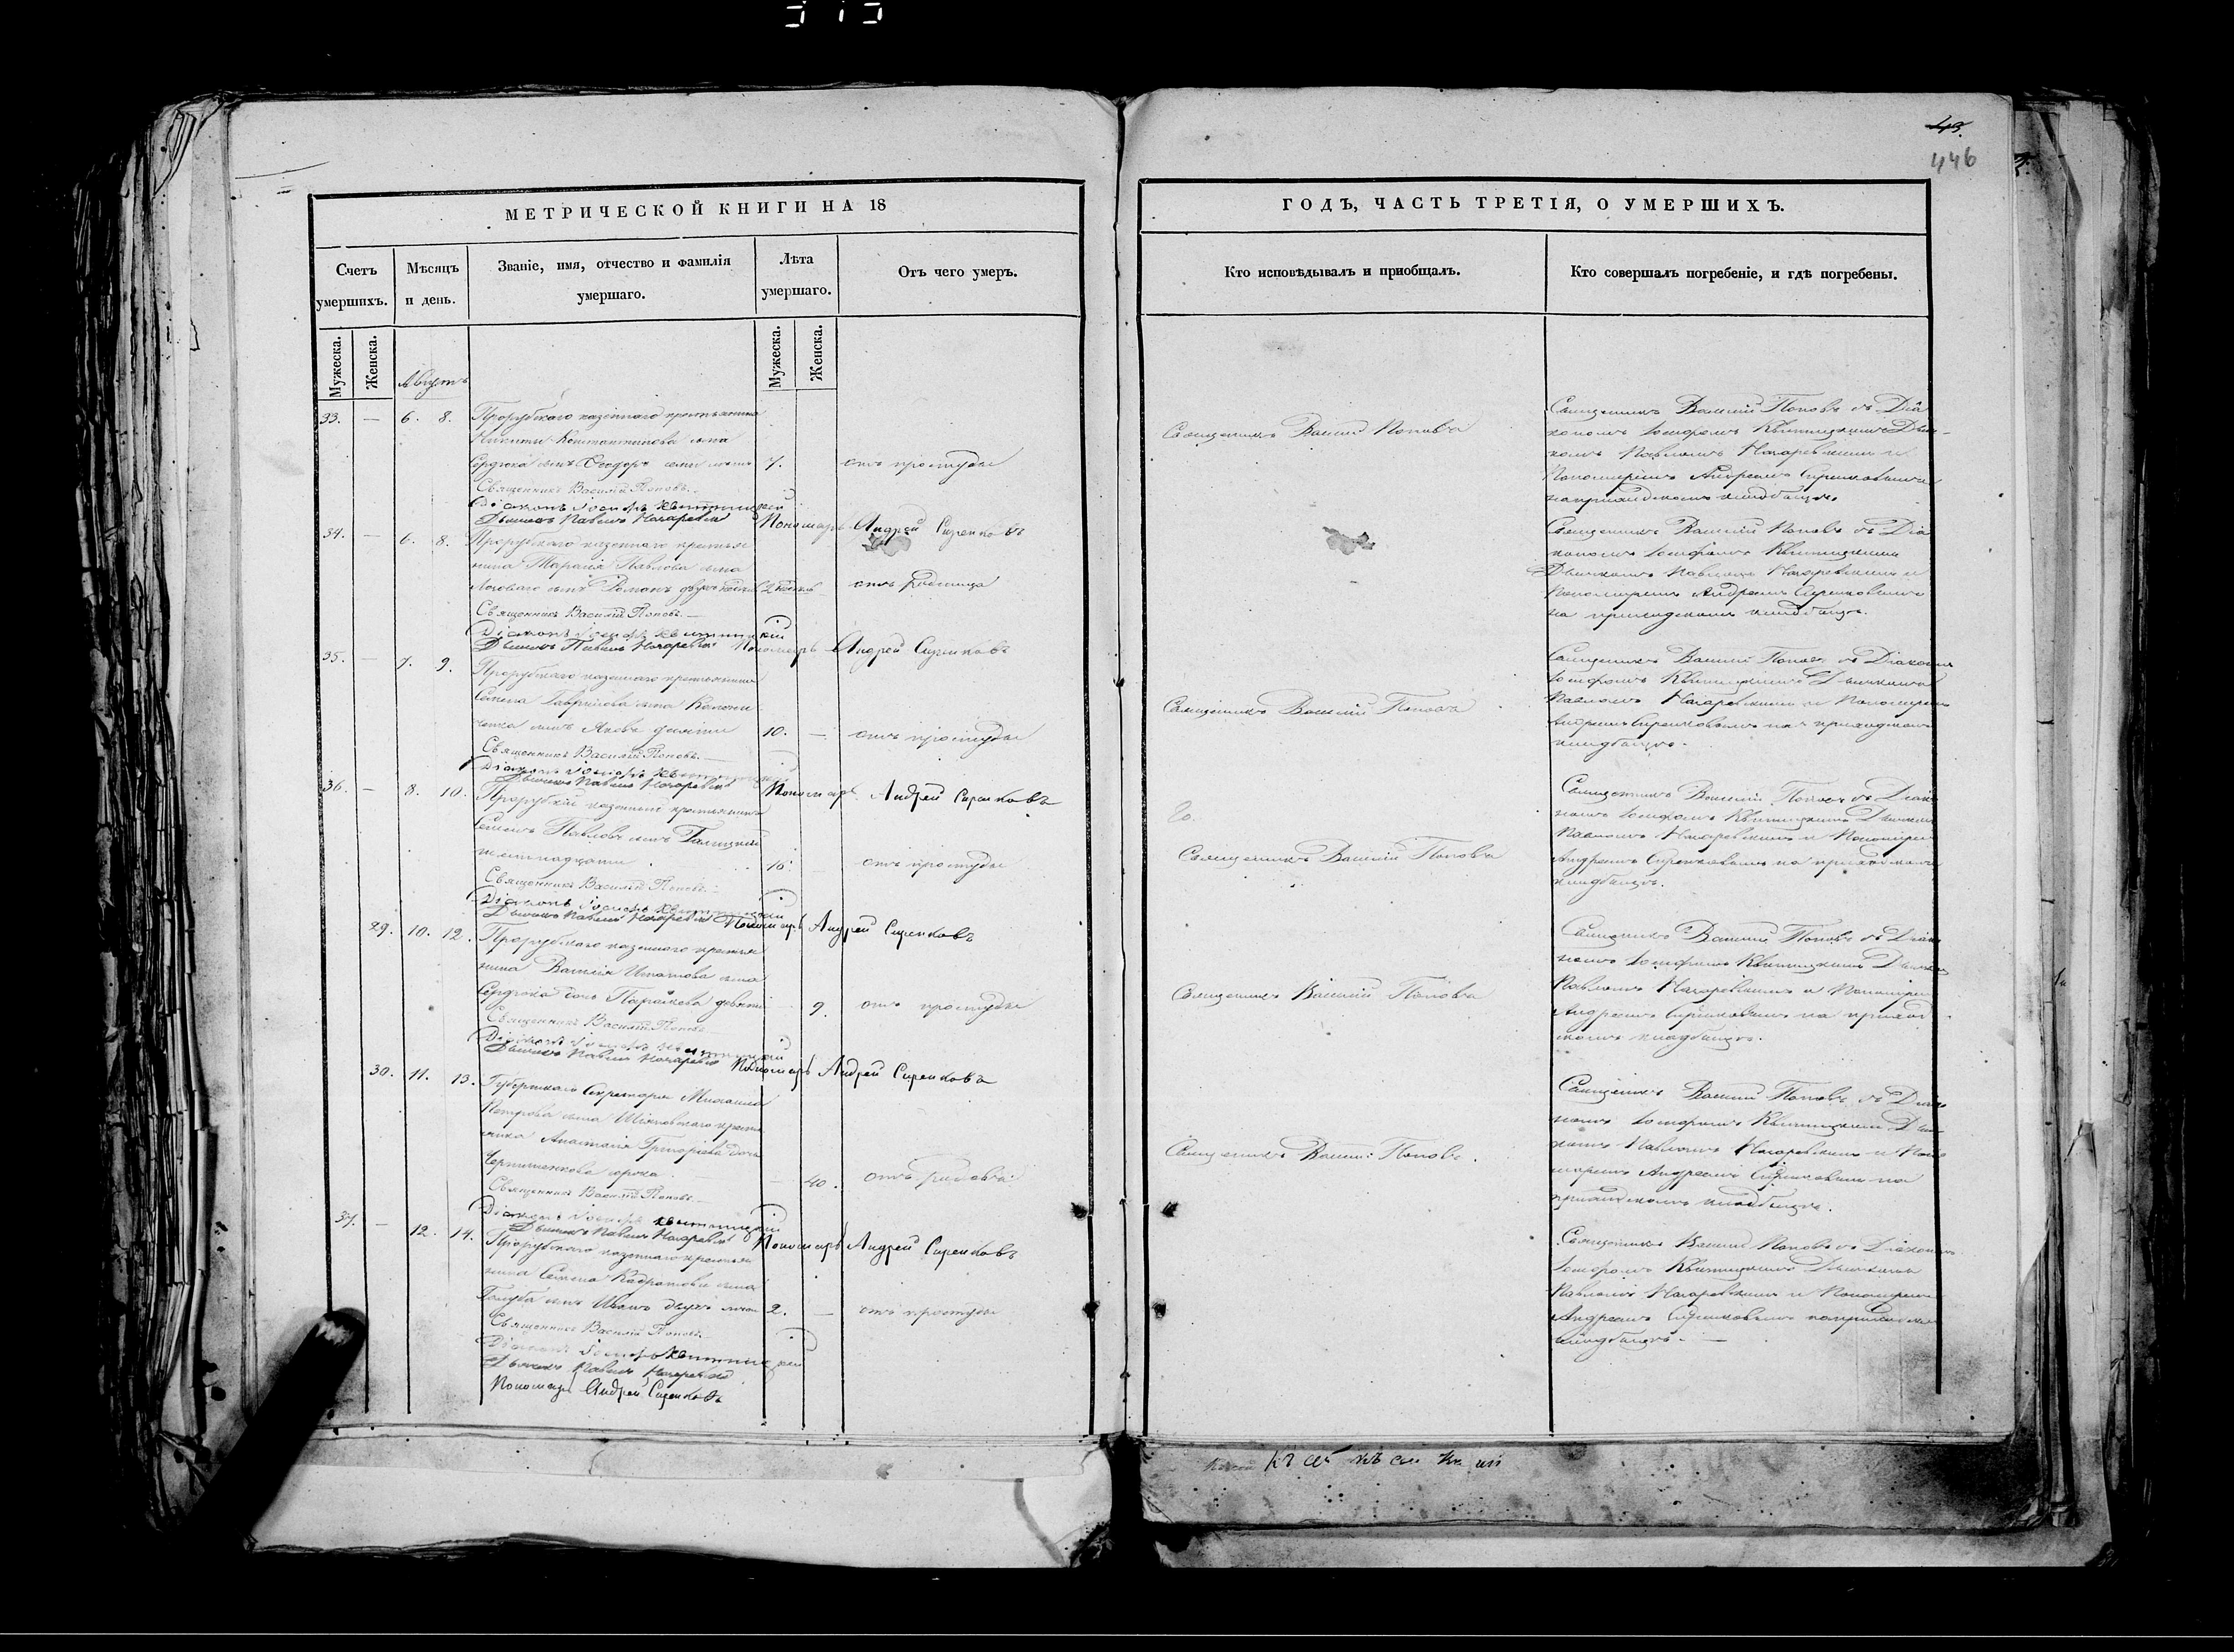 43.
446
МЕТРИЧЕСКОЙ КНИГИ НА 18
Счетъ умершихъ.
Мѣсяцъ и день.
Званіе, имя, отчество и фамилія умершаго.
Лѣта умершаго.
Отъ чего умеръ.
Мужеска.
Женска.
Мужеска.
Женска.
Августъ
33. — 6. 8. Прорубскаго казеннаго крестьянина
Никиты Константинова сына
Сердюка сынъ Феодоръ семи летъ 7. отъ простуды
Священникъ Василій Поповъ.
Діаконъ Іосифъ Квитницкій
Дьячекъ Павелъ Назаревскій Пономарь Андрей Сиренковъ
34. — 6. 8. Прорубскаго казеннаго крестья
нина Тарасія Павлова сына
сынъ Романъ двухъ 2 отъ родимца
Священникъ Василій Поповъ.
Діаконъ Іосифъ Квитницкій
Дьячекъ Павелъ Назаревскій Пономарь Андрей Сиренковъ
35. — 7. 9. Прорубскаго казеннаго крестьянина
Семена Гаврилова сына
сынъ Яковъ десяти 10. — отъ простуды
Священникъ Василій Поповъ.
Діаконъ Іосифъ Квитницкій
Дьячекъ Павелъ Назаревскій Пономарь Андрей Сиренковъ
36. — 8. 10. Прорубскій казенный крестьянинъ
Семенъ Павловъ сынъ Галицкій
16. отъ простуды
Священникъ Василій Поповъ.
Діаконъ Іосифъ Квитницкій
Дьячекъ Павелъ Назаревскій Пономарь Андрей Сиренковъ
29. 10. 12. Прорубскаго казеннаго крестья
нина Василія Игнатова сына
Сердюка дочь Параскева девяти — 9. отъ простуды
Священникъ Василій Поповъ
Діаконъ Іосифъ Квитницкій
Дьячекъ Павелъ Назаревскій Пономарь Андрей Сиренковъ
30. 11. 13. Губернскаго Секретаря Михаила
Петрова сына
Анастасія Григорьева дочь
сорока — 40. отъ родовъ
Священникъ Василій Поповъ.
Діаконъ Іосифъ Квитницкій
Дьячекъ Павелъ Назаревскій Пономарь Андрей Сиренковъ
37. — 12. 14. Прорубскаго казеннаго крестья
нина Семена Кодратова сына
Голуба сынъ Иванъ двухъ летъ 2. — отъ простуды
Священникъ Василій Поповъ.
Діаконъ Іосифъ Квитницкій
Дьячекъ Павелъ Назаревскій
Пономарь Андрей Сиренковъ
ГОДЪ, ЧАСТЬ ТРЕТІЯ, О УМЕРШИХЪ.
Кто исповѣдывалъ и приобщалъ.
Кто совершалъ погребеніе, и гдѣ погребены.
Священникъ Василій Поповъ
Священникъ Василій Поповъ съ Діа
кономъ Іосифомъ Квитницкимъ Дьяч-
комъ Павломъ Назаревскимъ и
Пономаремъ Андреемъ Сиренковымъ
на приходскомъ кладбищѣ.
Священникъ Василій Поповъ съ Діа
кономъ Іосифомъ Квитницкимъ
Дьячкомъ Павломъ Назаревскимъ и
Пономаремъ Андреемъ Сиренковымъ
на приходскомъ кладбищѣ.
Священникъ Василій Поповъ
Священникъ Василій Поповъ съ Діакономъ
Іосифомъ Квитницкимъ Дьячкомъ
Павломъ Назаревскимъ и Пономаремъ
Андреемъ Сиренковымъ на приходскомъ
кладбищѣ.
Священникъ Василій Поповъ
Священникъ Василій Поповъ съ Діако
номъ Іосифомъ Квитницкимъ Дьячкомъ
Павломъ Назаревскимъ и Пономаремъ
Андреемъ Сиренковымъ на приходскомъ
кладбищѣ.
Священникъ Василій Поповъ
Священникъ Василій Поповъ съ Діако
номъ Іосифомъ Квитницкимъ Дьячкомъ
Павломъ Назаревскимъ и Пономаремъ
Андреемъ Сиренковымъ на приход
скомъ кладбищѣ.
Священникъ Василій Поповъ.
Священникъ Василій Поповъ съ Діако
номъ Іосифомъ Квитницкимъ Дьяч
комъ Павломъ Назаревскимъ и Поно
маремъ Андреемъ Сиренковымъ на
приходскомъ кладбищѣ.
Священникъ Василій Поповъ съ Діакономъ
Іосифомъ Квитницкимъ Дьячкомъ
Павломъ Назаревскимъ и Пономаремъ
Андреемъ Сиренковымъ на приходскомъ
кладбищѣ.